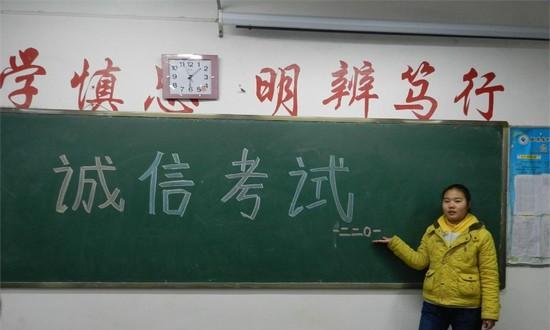 学慎思 明辨笃行
诚信考试
-二二〇-